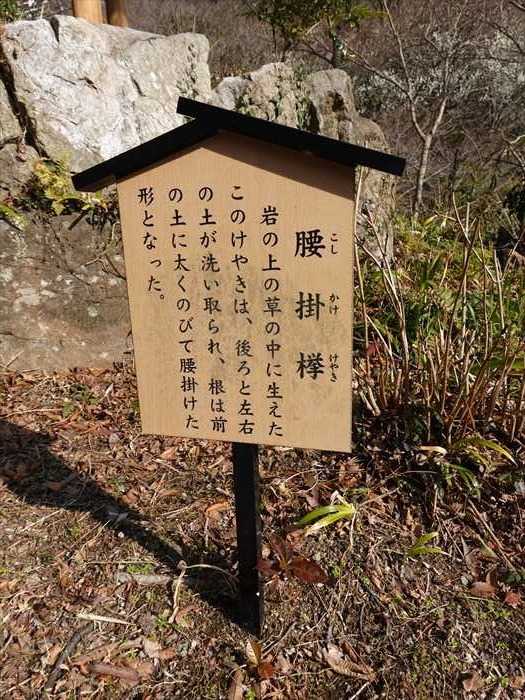 腰掛欅
こしかけけやき
岩の上の草の中に生えた
このけやきは、後ろと左右
の土が洗い取られ、根は前
の土に太くのびて腰掛けた
形となった。